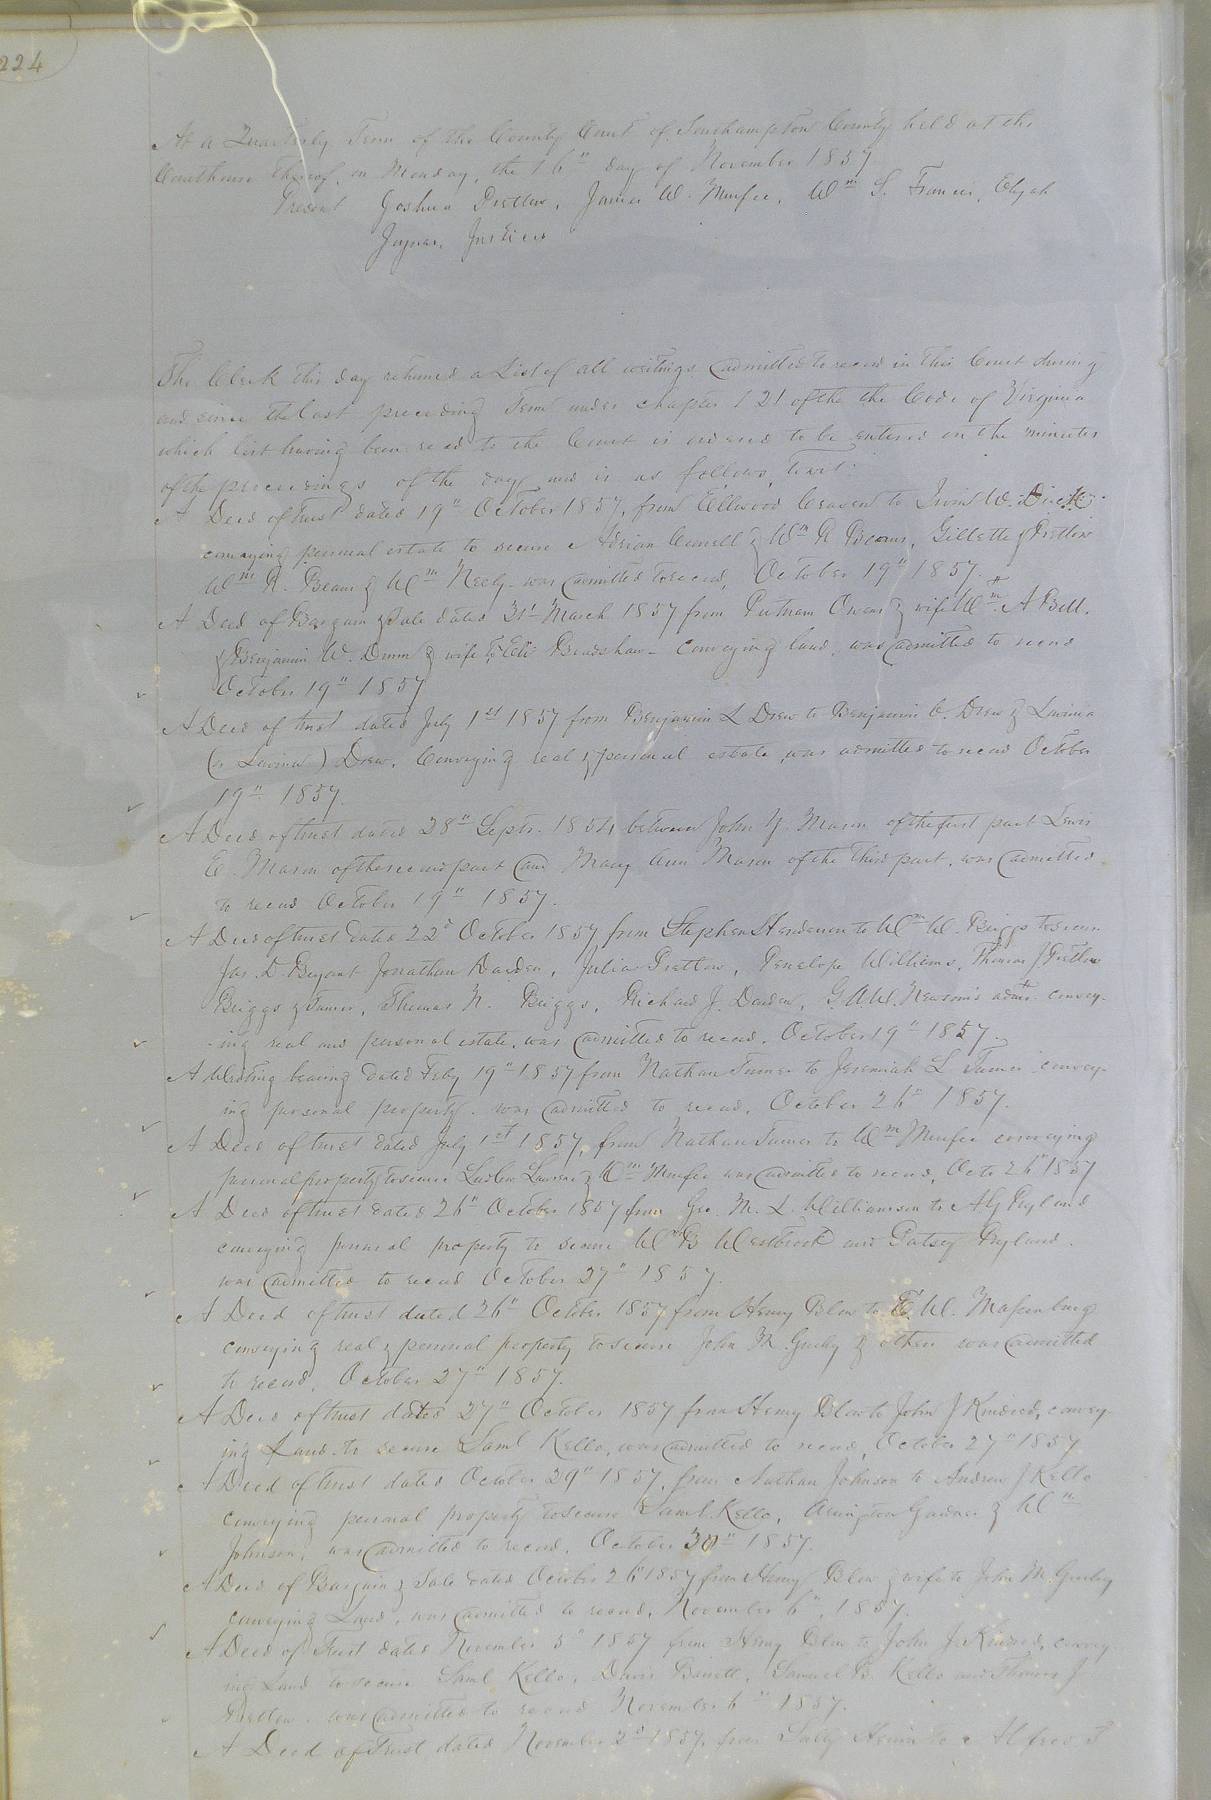 224
At a Quarterly Term of the County Court of Southampton County held at the
Courthouse thereof, on Monday, the 16" day of November 1857
Present Joshua Pretlow, James W. Murfee, Wm S. Francis, Elijah
Joyner, Justices
The Clerk this day returned a List of all writings admitted to record in this Court during
and since the last preceding Term under chapter 121 of the the Code of Virginia
which list having been read to the Court is ordered to be entered on the minutes
of the proceedings of the day and is as follows, to wit:
A Deed of trust dated 19" October 1857, from Ellwood to W.
conveying personal estate to secure & Wm R Beams, Gillette & Pretlow
Wm R. Beams & Wm Neely was admitted to record, October 19" 1857.
A Deed of Bargain & Sale dated 31st March 1857 from Putnam Owens & wife Wm A Bell.
& Benjamin W. Dunn & wife to Eli Bradshaw - conveying land, was admitted to record
October 19" 1857
A Deed of trust dated July 1st 1857 from Benjamin L Drew to Benjamin C. Drew & Lavinia
(or ) Drew, Conveying real & personal estate, was admitted to record October
19" 1857.
A Deed of trust dated 28" Septr. 1854 between John Y. Mason of the first part Lewis
E. Mason of the second part and Mary Ann Mason of the third part, was admitted
to record October 19" 1857.
A Deed of trust dated 22d October 1857 from Stephen Henderson to Wm W. Briggs to secure
Jas. D Bryant Jonathan Darden, Julia Pretlow, Penelope Williams, Thomas J Pretlow
Briggs & Turner, Thomas N. Briggs, Richard J. Darden, G. A. W. Newsom's admr. convey-
-ing real and personal estate, was admitted to record, October 19" 1857.
A Writing bearing dated Feby 19" 1857 from Nathan Turner to Jeremiah L Turner convey-
ing personal property. was admitted to record, October 26" 1857.
A Deed of trust dated July 1st 1857, from Nathan Turner to Wm Murfee conveying
personal property to secure & Wm Murfee was admitted to record, Octo 26" 1857
A Deed of trust dated 26" October 1857 from Geo. M. L. Williamson to A G Ryland
conveying personal property to secure Wm B Westbrook and Patsey Ryland.
was admitted to record October 27" 1857.
A Deed of trust dated 26" October 1857 from Henry Blow to E. W. Massenburg
conveying real & personal property to secure John M. Gurley & others was admitted
to record, October 27" 1857.
A Deed of trust dated 27" October 1857 from Henry Blow to John J Kindred, convey-
ing Land to secure Saml Kello, was admitted to record, October 27" 1857
A Deed of trust dated October 29" 1857, from Nathan Johnson to Andrew J Kello
conveying personal property to secure Saml. Kello, Arrington Gardner & Wm
Johnson, was admitted to record, October 30" 1857.
A Deed of Bargain & Sale dated October 26" 1857 from Henry Blow & wife to John M. Gurley
conveying Land, was admitted to record, November 6", 1857.
A Deed of Trust dated November 5" 1857 from Henry Blow to John J. Kindred, convey
ing Land to secure Saml Kello, Davis Barrett, Samuel B. Kello and Thomas J
Pretlow. was admitted to record November 6" 1857.
A Deed of Trust dated November 2d 1857, from Sally to Alfred